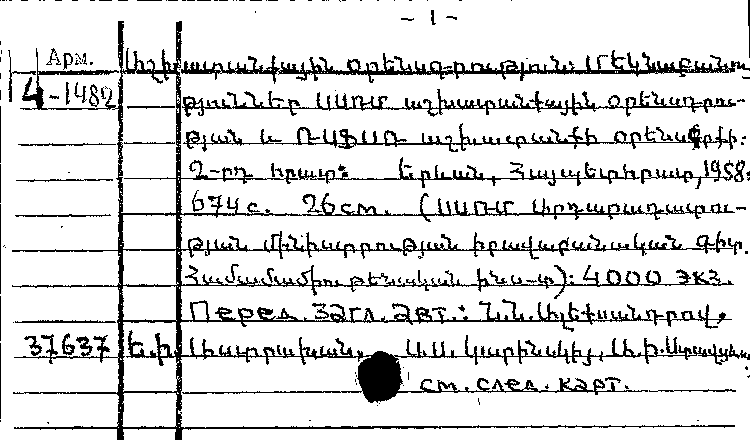 - 1 -
Арм. Աշխատանքային օրենսդրություն: Մեկնաբանու-
4-1482 թյուններ ՍՍՌՄ աշխատանքային օրենսդրու-
թյան և ՌՍՖՍՌ աշխատանքի օրենսգրքի:
2-րդ հրատ: Երևան, Հայպետհրատ, 1958:
674 с. 26 см. (ՍՍՌՄ Արդարադատու-
թյան մինիստրության իրավաբանական գիտ.
Համամիութենական ինս-տ): 4000 экз.
Перед. загл. авт.: Ն.Ն. Ալեքսանդրով,
37637 Ե.Ի. Աստրախան, Ս.Ս. Կարինսկիյ,
см. след. карт.